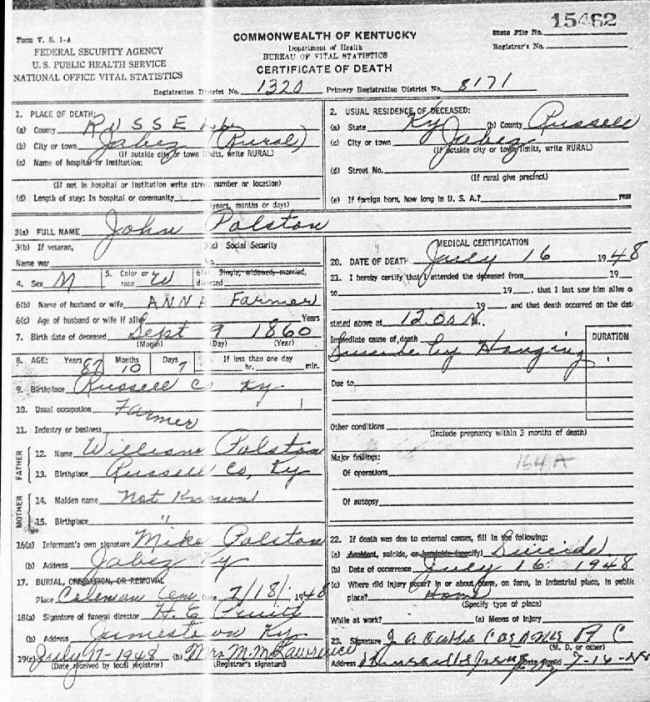 Form V. S. 1-A
FEDERAL SECURITY AGENCY
U. S. PUBLIC HEALTH SERVICE
NATIONAL OFFICE VITAL STATISTICS
COMMONWEALTH OF KENTUCKY
Department of Health
BUREAU OF VITAL STATISTICS
CERTIFICATE OF DEATH
State File No. 15462
Registrar's No.
Registration District No. 1320 Primary Registration District No. 8171
1. PLACE OF DEATH:
(a) County RUSSELL
(b) City or town Jabez (Rural)
(If outside city or town limits, write RURAL)
(c) Name of hospital or institution:
(If not in hospital or institution write street number or location)
(d) Length of stay: In hospital or community
(years, months or days)
2. USUAL RESIDENCE OF DECEASED:
(a) State Ky (b) County Russell
(c) City or town Jabez
(If outside city or town limits, write RURAL)
(d) Street No.
(If rural give precinct)
(e) If foreign born, how long in U. S. A.? year
3(a) FULL NAME John Polston
3(b) If veteran, 3(c) Social Security
Name war No.
4. Sex M 5. Color or race W 6(a) Single, widowed, married, divorced
6(b) Name of husband or wife ANNA Farmer
6(c) Age of husband or wife if alive Years
7. Birth date of deceased Sept 9 1860
(Month) (Day) (Year)
8. AGE: Years 87 Months 10 Days 7 If less than one day hr. min.
9. Birthplace Russell Co Ky
10. Usual occupation Farmer
11. Industry or business
FATHER
12. Name William Polston
13. Birthplace Russell Co, Ky
MOTHER
14. Maiden name Not Known
15. Birthplace "
16(a) Informant's own signature Mike Polston
(b) Address Jabez Ky
17. BURIAL, CREMATION, OR REMOVAL
Place Coleman Cem Date 7/18/ 1948
18(a) Signature of funeral director H. E. Pruitt
(b) Address Jamestown Ky.
19(a) July 17-1948 (b) Mrs. M. M. Lawrence
(Date received by local registrar) (Registrar's signature)
MEDICAL CERTIFICATION
20. DATE OF DEATH July 16 1948
21. I hereby certify that I attended the deceased from 19
to 19 , that I last saw him alive o
19 , and that death occurred on the dat
stated above at 12.00 M.
Immediate cause of death
Suicide by Hanging
DURATION
Due to
Other conditions
(Include pregnancy within 3 months of death)
Major findings: 164A
Of operations
Of autopsy
22. If death was due to external causes, fill in the following:
(a) Accident, suicide, or homicide (specify) Suicide
(b) Date of occurrence July 16 1948
(c) Where did injury occur? in or about home, on farm, in industrial place, in public
place? Home
(Specify type of place)
While at work? (e) Means of injury
23. Signature J. A.
(M. D. or other)
Address Date signed 7-16-48